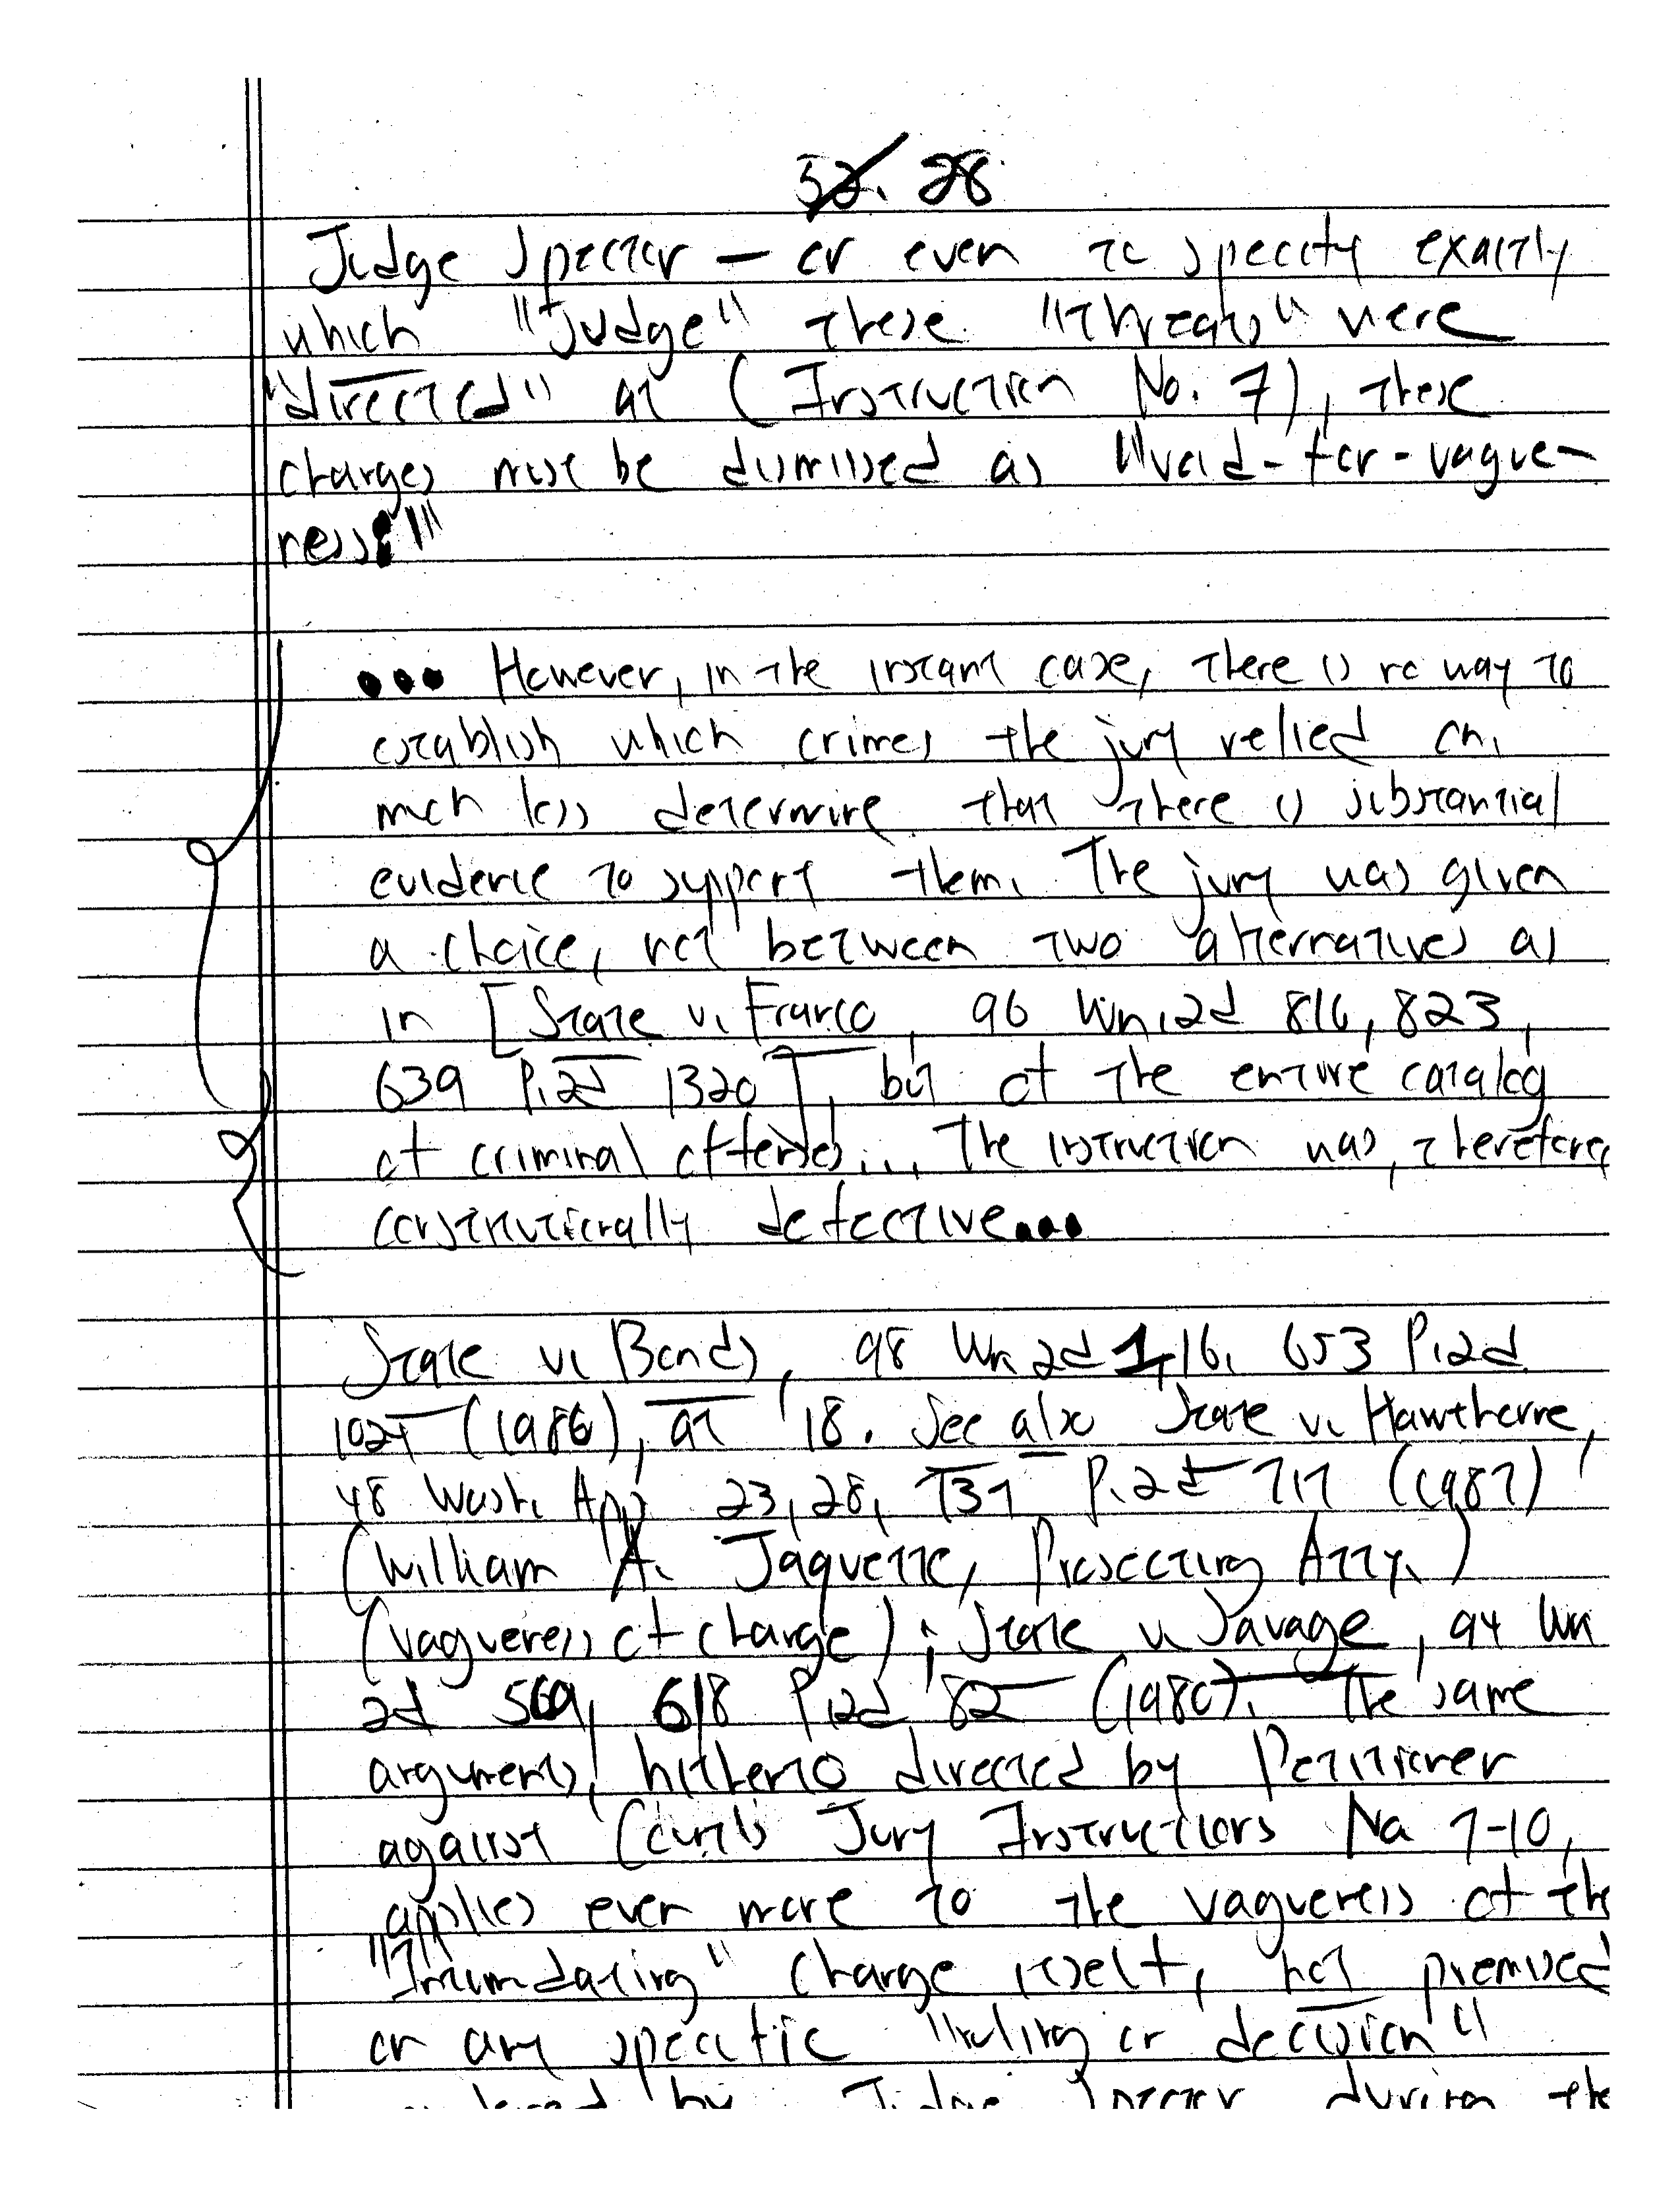 52. 28
Judge Spector — or even to specify exactly
which "Judge" these "threats" were
"directed" at (Instruction No. 7), these
charges must be dismissed as "void-for-vague-
ness:"
... However, in the instant case, there is no way to
establish which crimes the jury relied on,
much less determine that there is substantial
evidence to support them. The jury was given
a choice, not between two alternatives as
in [State v. Franco, 96 Wn.2d 816, 823,
639 P.2d 1320], but of the entire catalog
of criminal offenses... The instruction was, therefore
constitutionally defective...
State v. Bonds, 98 Wn 2d 1, 16, 653 P.2d
1024 (1986), at 18. See also State v. Hawthorne,
48 Wash. App. 23, 28, 737 P.2d 717 (1987)
(William A. Jaquette, Prosecuting Atty.)
(vagueness of charge); State v. Savage, 94 Wn
2d 569, 618 P.2d 82 (1980). The same
arguments, hitherto directed by Petitioner
against Court's Jury Instructions No 7-10,
applies even more to the vagueness of the
"Intimidating" charge itself, not premised
on any specific "ruling or decision"
by Judge Spector during the